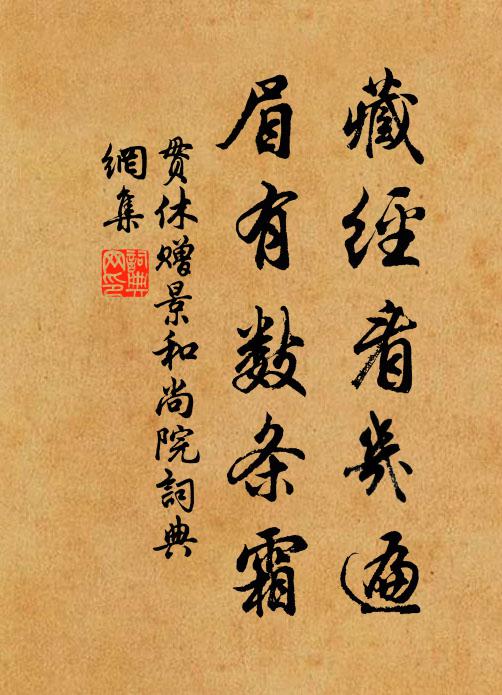 藏經看幾遍
眉有数条霜
贯休赠景和尚院詞典
網集
詞典
网印